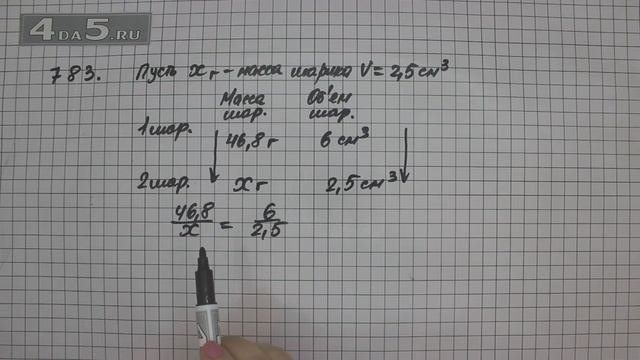 4DA5.RU
783. Пусть x г – масса шарика V = 2,5 см³
Масса шар. Об'ем шар.
1 шар. 46,8 г 6 см³
2 шар. x г 2,5 см³
46,8/x = 6/2,5